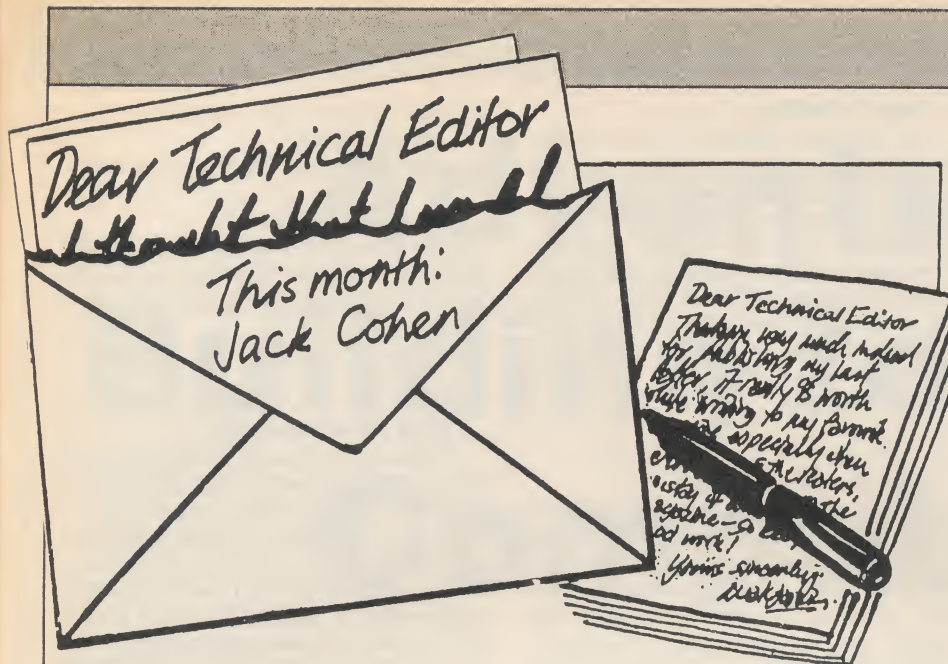 Dear Technical Editor
I thought that I would
This month:
Jack Cohen
Dear Technical Editor
Thankyou very much indeed
for publishing my last
letter, it really is worth
while writing to my favourite
especially when
the
work!
Yours sincerely,